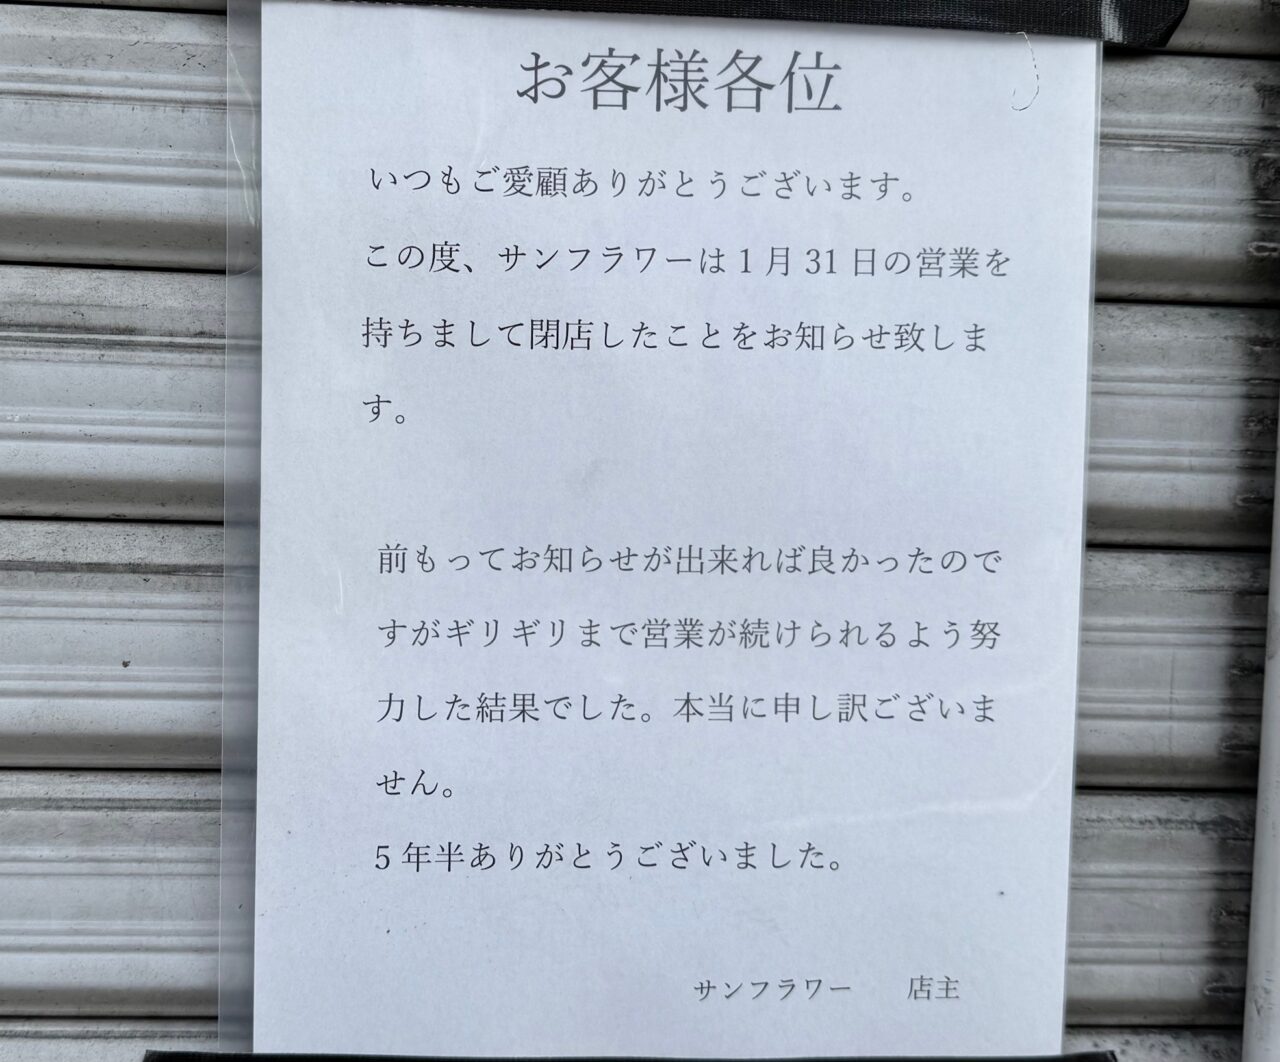 お客様各位
いつもご愛顧ありがとうございます。
この度、サンフラワーは1月31日の営業を
持ちまして閉店したことをお知らせ致しま
す。
前もってお知らせが出来れば良かったので
すがギリギリまで営業が続けられるよう努
力した結果でした。本当に申し訳ございま
せん。
5年半ありがとうございました。
サンフラワー　店主